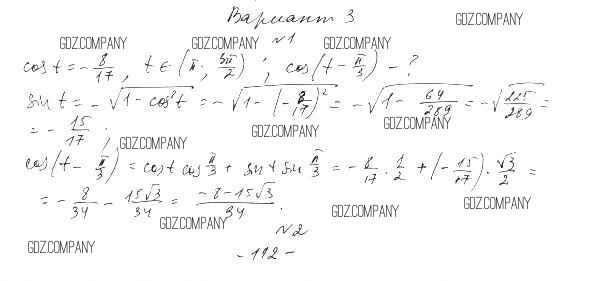 Вариант 3
GDZ.COMPANY
№1
GDZ.COMPANY GDZ.COMPANY GDZ.COMPANY
cos t = -8/17, t ∈ (π; 3π/2); cos(t - π/3) - ?
sin t = -√(1 - cos²t) = -√(1 - (-8/17)²) = -√(1 - 64/289) = -√(225/289) =
GDZ.COMPANY GDZ.COMPANY
= -15/17; GDZ.COMPANY
cos(t - π/3) = cos t cos π/3 + sin t sin π/3 = -8/17 · 1/2 + (-15/17) · √3/2 =
= -8/34 - 15√3/34 = (-8-15√3)/34.
GDZ.COMPANY GDZ.COMPANY
№2
GDZ.COMPANY
-112-